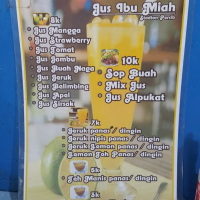 Jus Ibu Miah
8k
Jus Mangga
Jus Strawberry
Jus Tomat
Jus Jambu
Jus Buah Naga
Jus Jeruk
Jus Belimbing
Jus Apel
Jus Sirsak
10k
Sop Buah
Mix Jus
Jus Alpukat
7k
Jeruk panas / dingin
Jeruk nipis panas / dingin
Jeruk Lemon panas / dingin
Lemon Teh Panas / dingin
5k
Teh Manis panas / dingin
8k